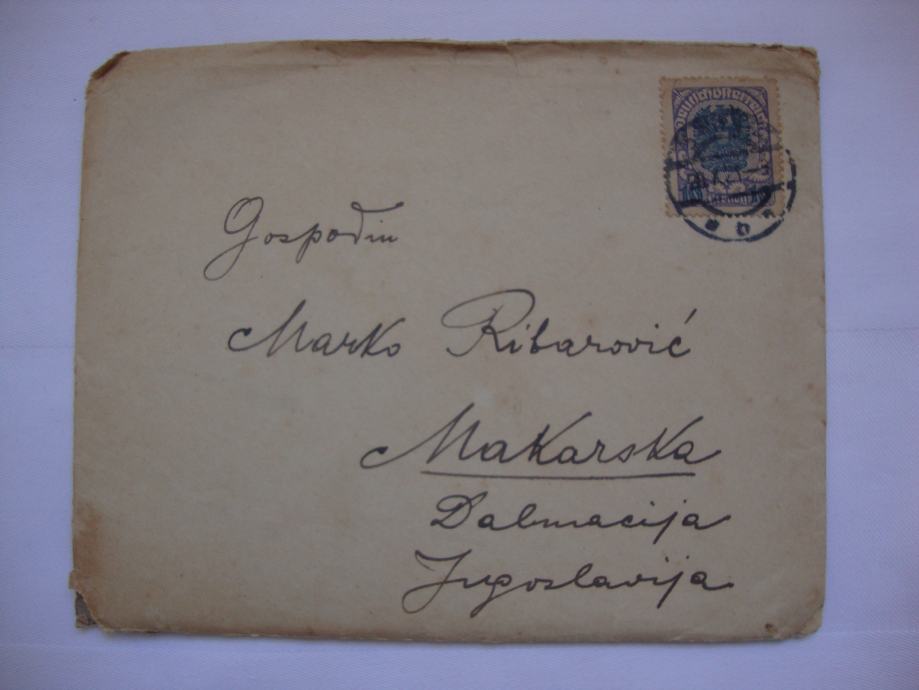 Deutschösterreich
Gospodin
Marko Ribarović
Makarska
Dalmacija
Jugoslavija